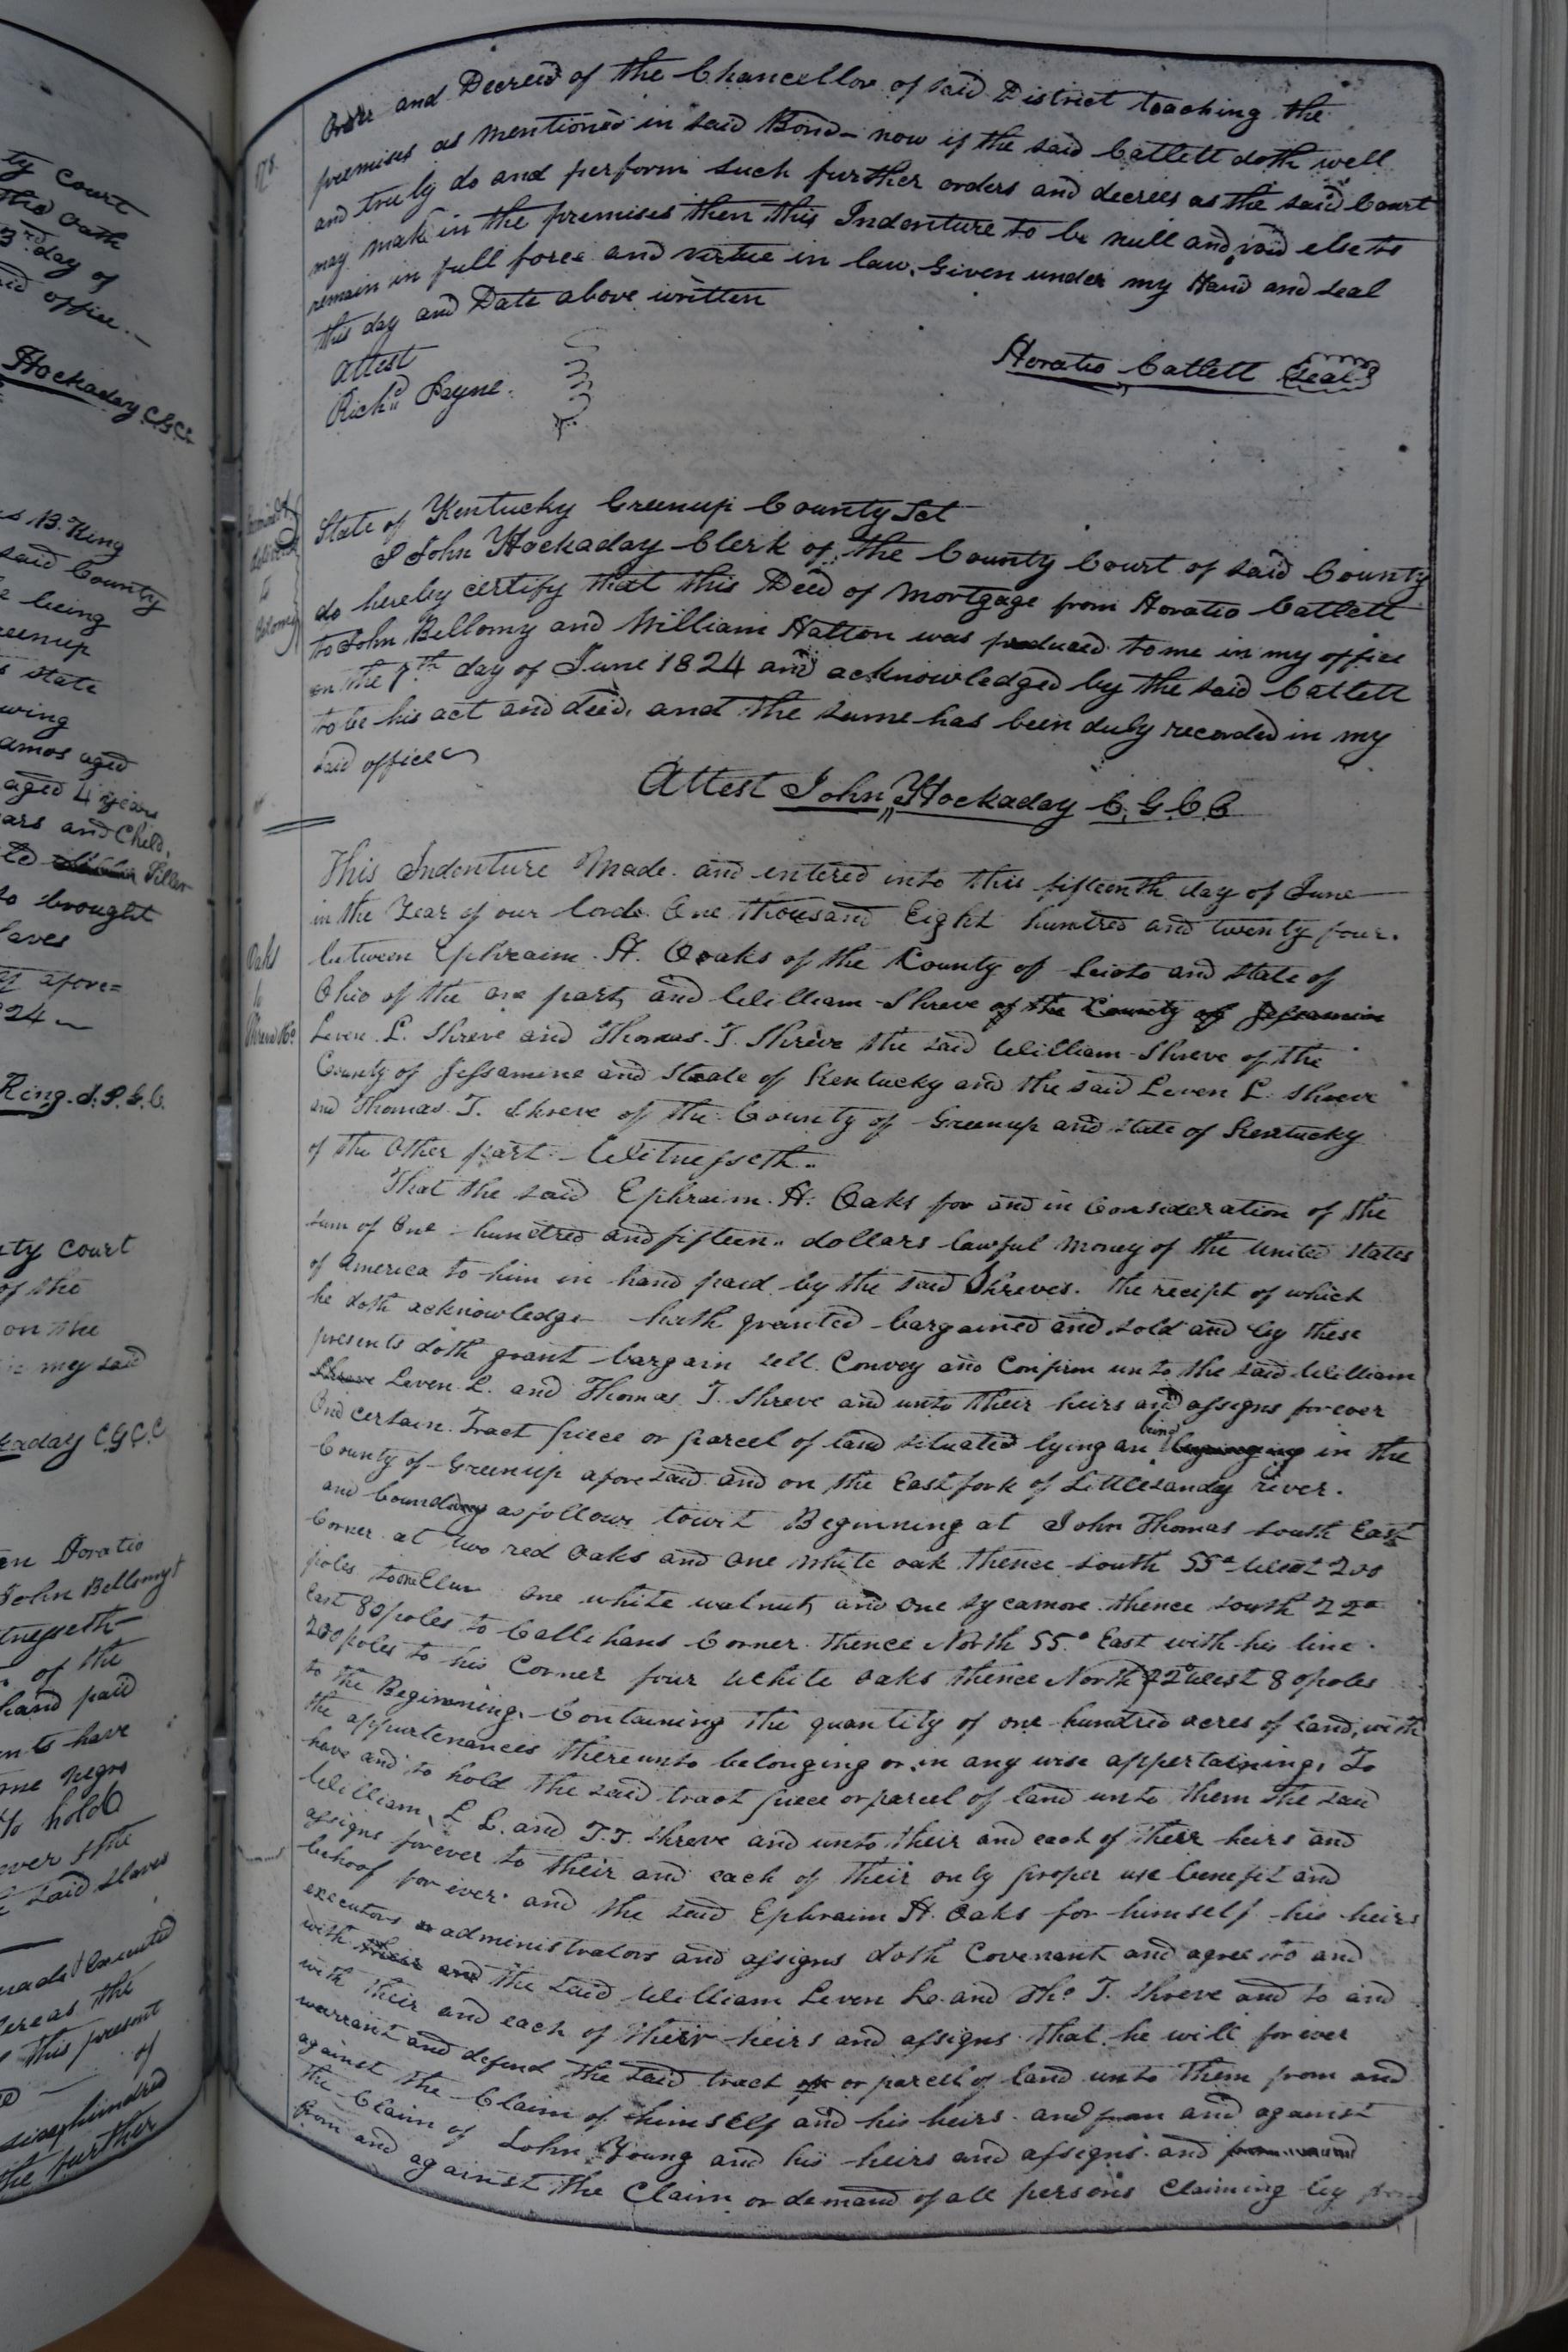 ty Court
the oath
3rd day of
said office.—
Hockaday C.G.C.C
s B. King
said County
e being
reenup
s state
wing
amos aged
aged 4 years
ars and Child,
to brought
laves
afore=
24 —
King. J.P.G.C.
nty Court
of the
on the
my said
kaday C.G.C.C
Horatio
John Bellomy
tnesseth
of the
hand paid
ents have
me negro
to hold
ever the
said slaves
made & executed
ereas the
this present
of
six hundred
the further
178.
Order and Decreed of the Chancellor of said District toaching the
premises as mentioned in said Bond — now if the said Catlett doth well
and truly do and perform such further orders and decrees as the said Court
may make in the premises then this Indenture to be null and void else to
remain in full force and virtue in law. Given under my Hand and seal
this day and Date above written
Attest
Richd. Payne.
Horatio Catlett Seal
State of Kentucky Greenup County Sct
I John Hockaday Clerk of the County Court of said County
do hereby certify that this Deed of Mortgage from Horatio Catlett
to John Bellomy and William Hatton was produced to me in my office
on the 7th day of June 1824 and acknowledged by the said Catlett
to be his act and deed, and the same has been duly recorded in my
said office
Attest John Hockaday C.G.C.C
delivered
to
Belomy
This Indenture Made and entered into this fifteenth day of June
in the Year of our lord One thousand Eight hundred and twenty four.
between Ephraim H. Oaks of the County of Scioto and state of
Ohio of the one part, and William Shreve of the County of Jessamine
Leven L. Shreve and Thomas T. Shreve the said William Shreve of the
County of Jessamine and State of Kentucky and the said Leven L. Shreve
and Thomas T. Shreve of the County of Greenup and state of Kentucky
of the Other part. Witnesseth..
Oaks
to
Shreve & Co
That the said Ephraim H. Oaks for and in Consideration of the
sum of One hundred and fifteen.. dollars lawful money of the United States
of America to him in hand paid by the said Shreves. the receipt of which
he doth acknowledge hath granted bargained and sold and by these
presents doth grant bargain sell Convey and Confirm unto the said William
Shreve Leven L. and Thomas T. Shreve and unto their heirs and assigns forever
One certain Tract piece or parcel of land situated lying an being in the
County of Greenup aforesaid and on the East fork of Littlesandy river.
and bounding as follows towit Beginning at John Thomas south East
Corner at two red Oaks and One White oak thence south 55° West 200
poles to one Elm one white walnut, and one sycamore thence south 22°
East 80 poles to Callihans Corner thence North 55° East with his line
200 poles to his Corner four White oaks thence North 22° West 80 poles
to the Beginning. Containing the quantity of one hundred acres of land, with
the appurtenances thereunto belonging or in any wise appertaining, To
have and to hold the said tract piece or parcel of land unto them the said
William, L L. and T. T. Shreve and unto their and each of their heirs and
assigns forever to their and each of their only proper use benefit and
behoof for ever. and the said Ephraim H. Oaks for himself his heirs
executors or administrators and assigns doth Covenant and agree to and
with their and the said William Leven L. and Tho. T. Shreve and to and
with their and each of their heirs and assigns that he will for ever
warrant and defend the said tract of or parcell of land unto them from and
against the Claim of himself and his heirs and from and against
the Claim of John Young and his heirs and assigns and
from and against the Claim or demand of all persons Claiming by